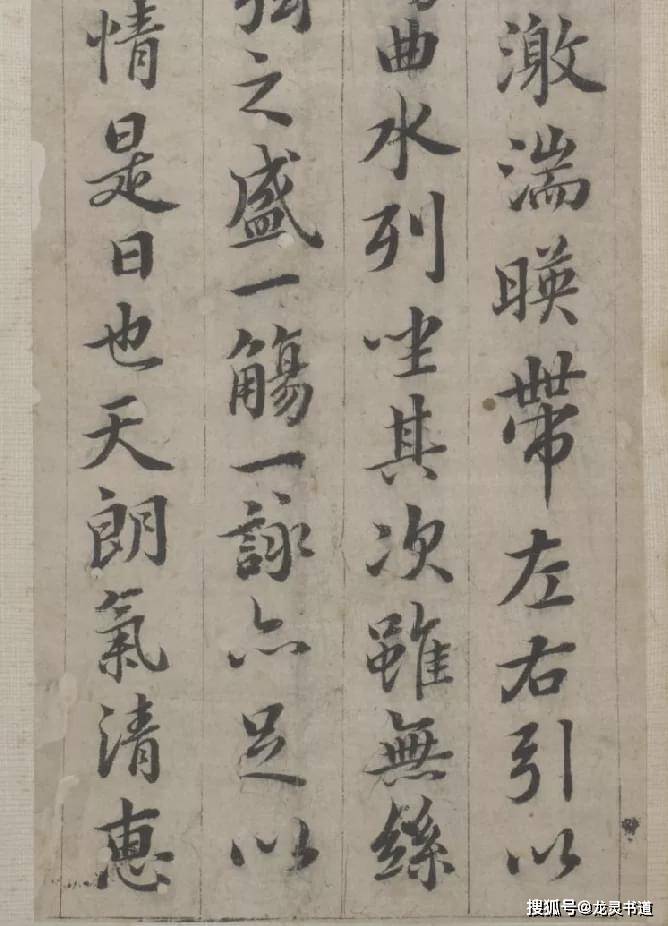 激湍暎帶左右引以
曲水列坐其次雖無絲
之盛一觴一詠亦足以
情是日也天朗氣清惠
搜狐号@龙灵书道